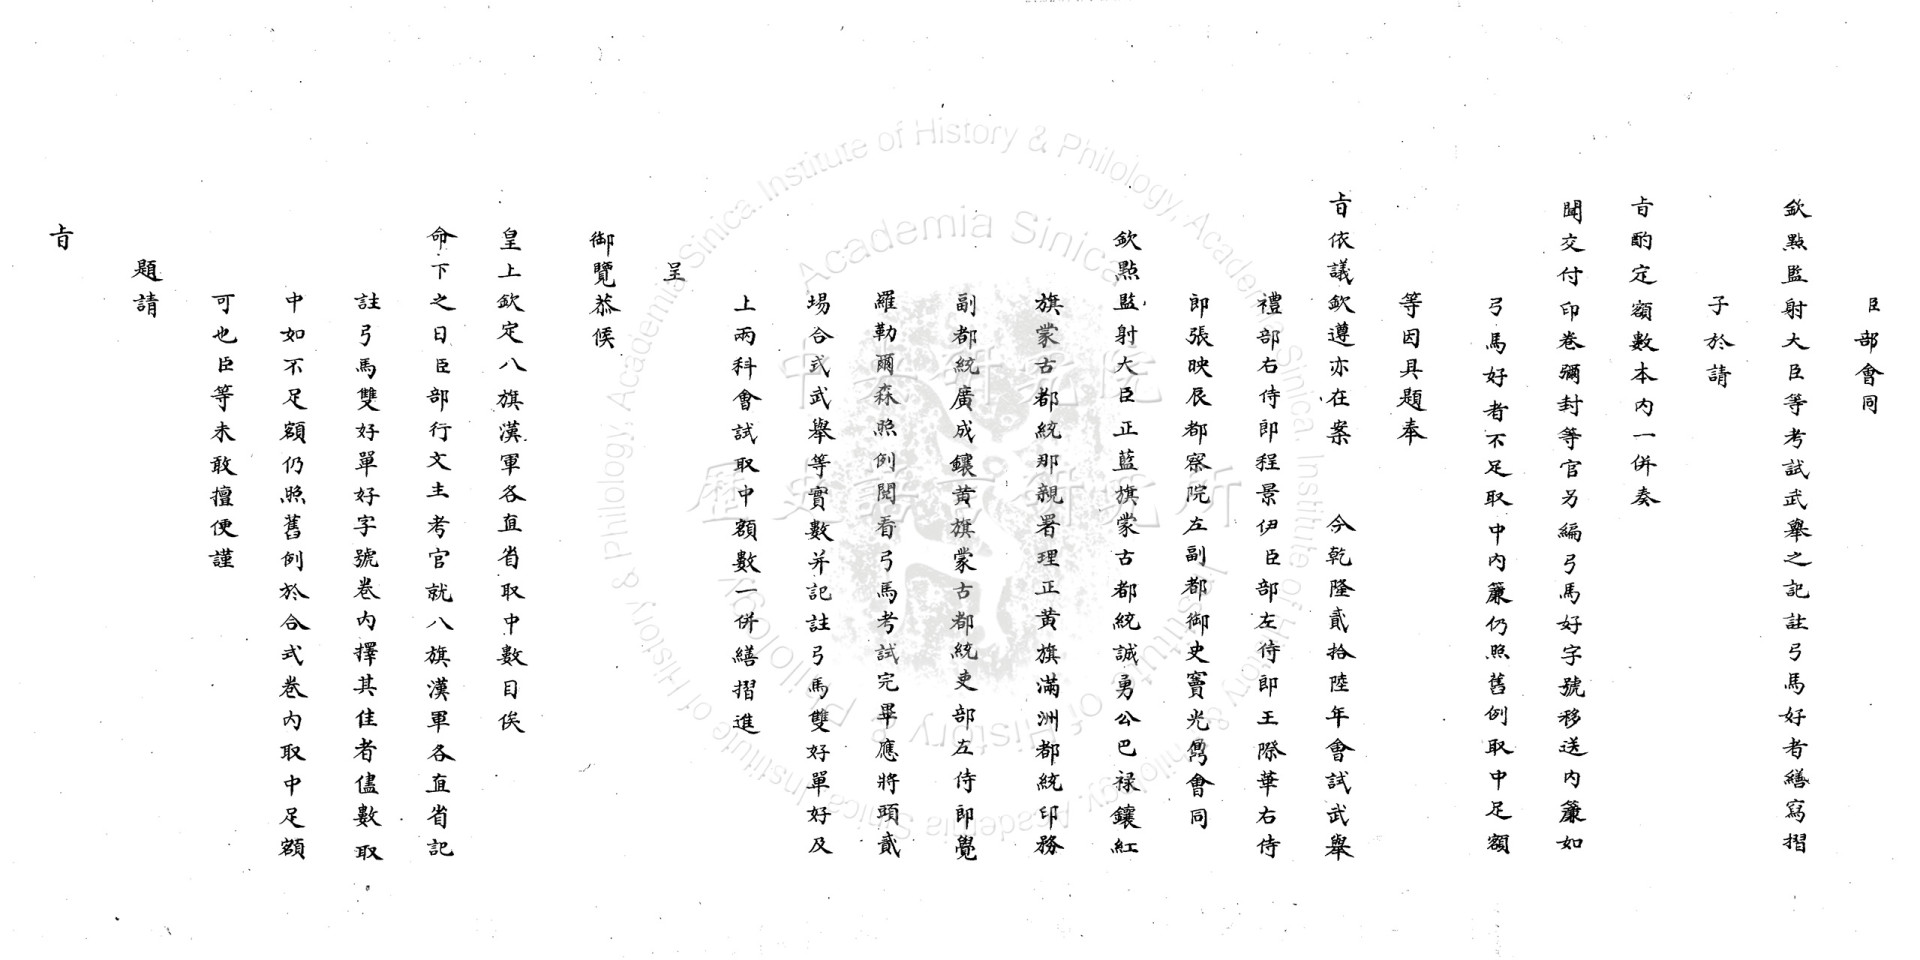 臣部會同
欽點監射大臣等考試武舉之記註弓馬好者繕寫摺
子於請
旨酌定額數本內一併奏
聞交付印卷彌封等官另編弓馬好字號移送內簾如
弓馬好者不足取中內簾仍照舊例取中足額
等因具題奉
旨依議欽遵亦在案 今乾隆貳拾陸年會試武舉
禮部右侍郎程景伊臣部左侍郎王際華右侍
郎張映辰都察院左副都御史竇光鼐會同
欽點監射大臣正藍旗蒙古都統誠勇公巴祿鑲紅
旗蒙古都統那親署理正黃旗滿洲都統印務
副都統廣成鑲黃旗蒙古都統吏部左侍郎覺
羅勒爾森照例閱看弓馬考試完畢應將頭貳
場合式武舉等實數并記註弓馬雙好單好及
上兩科會試取中額數一併繕摺進
呈
御覽恭候
皇上欽定八旗漢軍各直省取中數目俟
命下之日臣部行文主考官就八旗漢軍各直省記
註弓馬雙好單好字號卷內擇其佳者儘數取
中如不足額仍照舊例於合式卷內取中足額
可也臣等未敢擅便謹
題請
旨
Academia Sinica
中央研究院
歷史語言研究所
Institute of History & Philology
Institute of History & Philology, Academia Sinica.